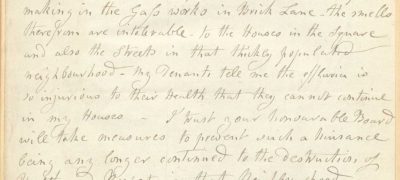 making in the Gass works in Brick Lane - the smells
therefrom are intolerable to the Houses in the Square
and also the Streets in that thickly populated
neighbourhood - My Tenants tell me the efluvia is
so injurious to their Health that they cannot continue
in my Houses - I trust your honourable Board
will take measures to prevent such a Nuisance
being any longer continued to the destruction of
in that Neighbourhood